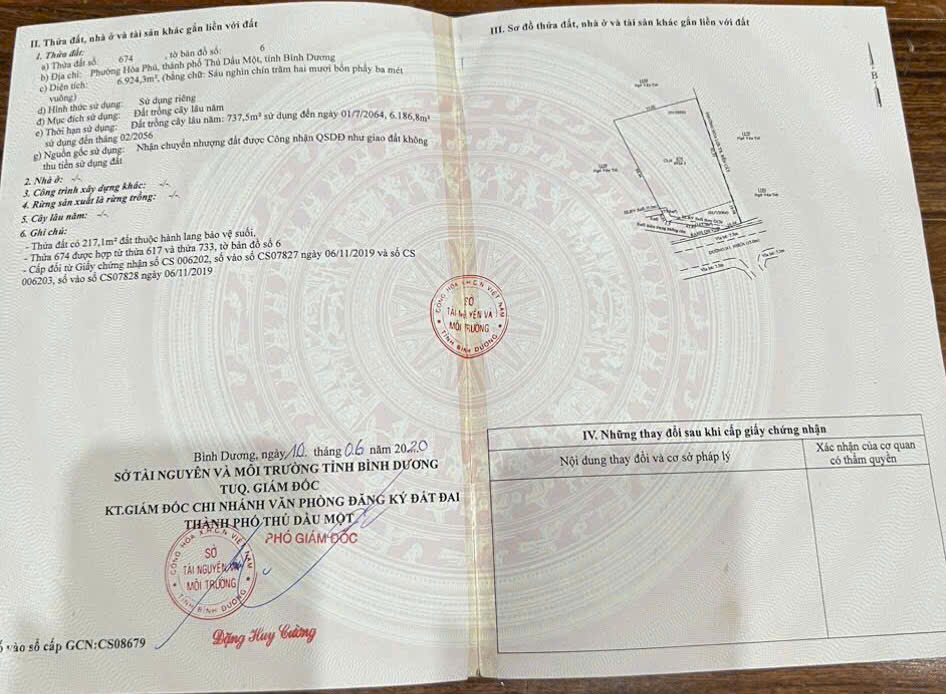 II. Thửa đất, nhà ở và tài sản khác gắn liền với đất
1. Thửa đất:
a) Thửa đất số: 674 , tờ bản đồ số: 6
b) Địa chỉ: Phường Hòa Phú, thành phố Thủ Dầu Một, tỉnh Bình Dương
c) Diện tích: 6.924,3m², (bằng chữ: Sáu nghìn chín trăm hai mươi bốn phẩy ba mét
vuông)
d) Hình thức sử dụng: Sử dụng riêng
đ) Mục đích sử dụng: Đất trồng cây lâu năm
e) Thời hạn sử dụng: Đất trồng cây lâu năm: 737,5m² sử dụng đến ngày 01/7/2064, 6.186,8m²
sử dụng đến tháng 02/2056
g) Nguồn gốc sử dụng: Nhận chuyển nhượng đất được Công nhận QSDĐ như giao đất không
thu tiền sử dụng đất
2. Nhà ở: -/-
3. Công trình xây dựng khác: -/-
4. Rừng sản xuất là rừng trồng: -/-
5. Cây lâu năm: -/-
6. Ghi chú:
- Thửa đất có 217,1m² đất thuộc hành lang bảo vệ suối.
- Thửa 674 được hợp từ thửa 617 và thửa 733, tờ bản đồ số 6
- Cấp đổi từ Giấy chứng nhận số CS 006202, số vào sổ CS07827 ngày 06/11/2019 và số CS
006203, số vào sổ CS07828 ngày 06/11/2019
Bình Dương, ngày 10 tháng 06 năm 2020
SỞ TÀI NGUYÊN VÀ MÔI TRƯỜNG TỈNH BÌNH DƯƠNG
TUQ. GIÁM ĐỐC
KT.GIÁM ĐỐC CHI NHÁNH VĂN PHÒNG ĐĂNG KÝ ĐẤT ĐAI
THÀNH PHỐ THỦ DẦU MỘT
PHÓ GIÁM ĐỐC
SỞ
TÀI NGUYÊN VÀ
MÔI TRƯỜNG
TỈNH BÌNH DƯƠNG
Đặng Huy Cường
vào sổ cấp GCN:CS08679
III. Sơ đồ thửa đất, nhà ở và tài sản khác gắn liền với đất
B
CỘNG HÒA X.H.C.N VIỆT NAM
SỞ
TÀI NGUYÊN VÀ
MÔI TRƯỜNG
TỈNH BÌNH DƯƠNG
IV. Những thay đổi sau khi cấp giấy chứng nhận
Nội dung thay đổi và cơ sở pháp lý
Xác nhận của cơ quan
có thẩm quyền